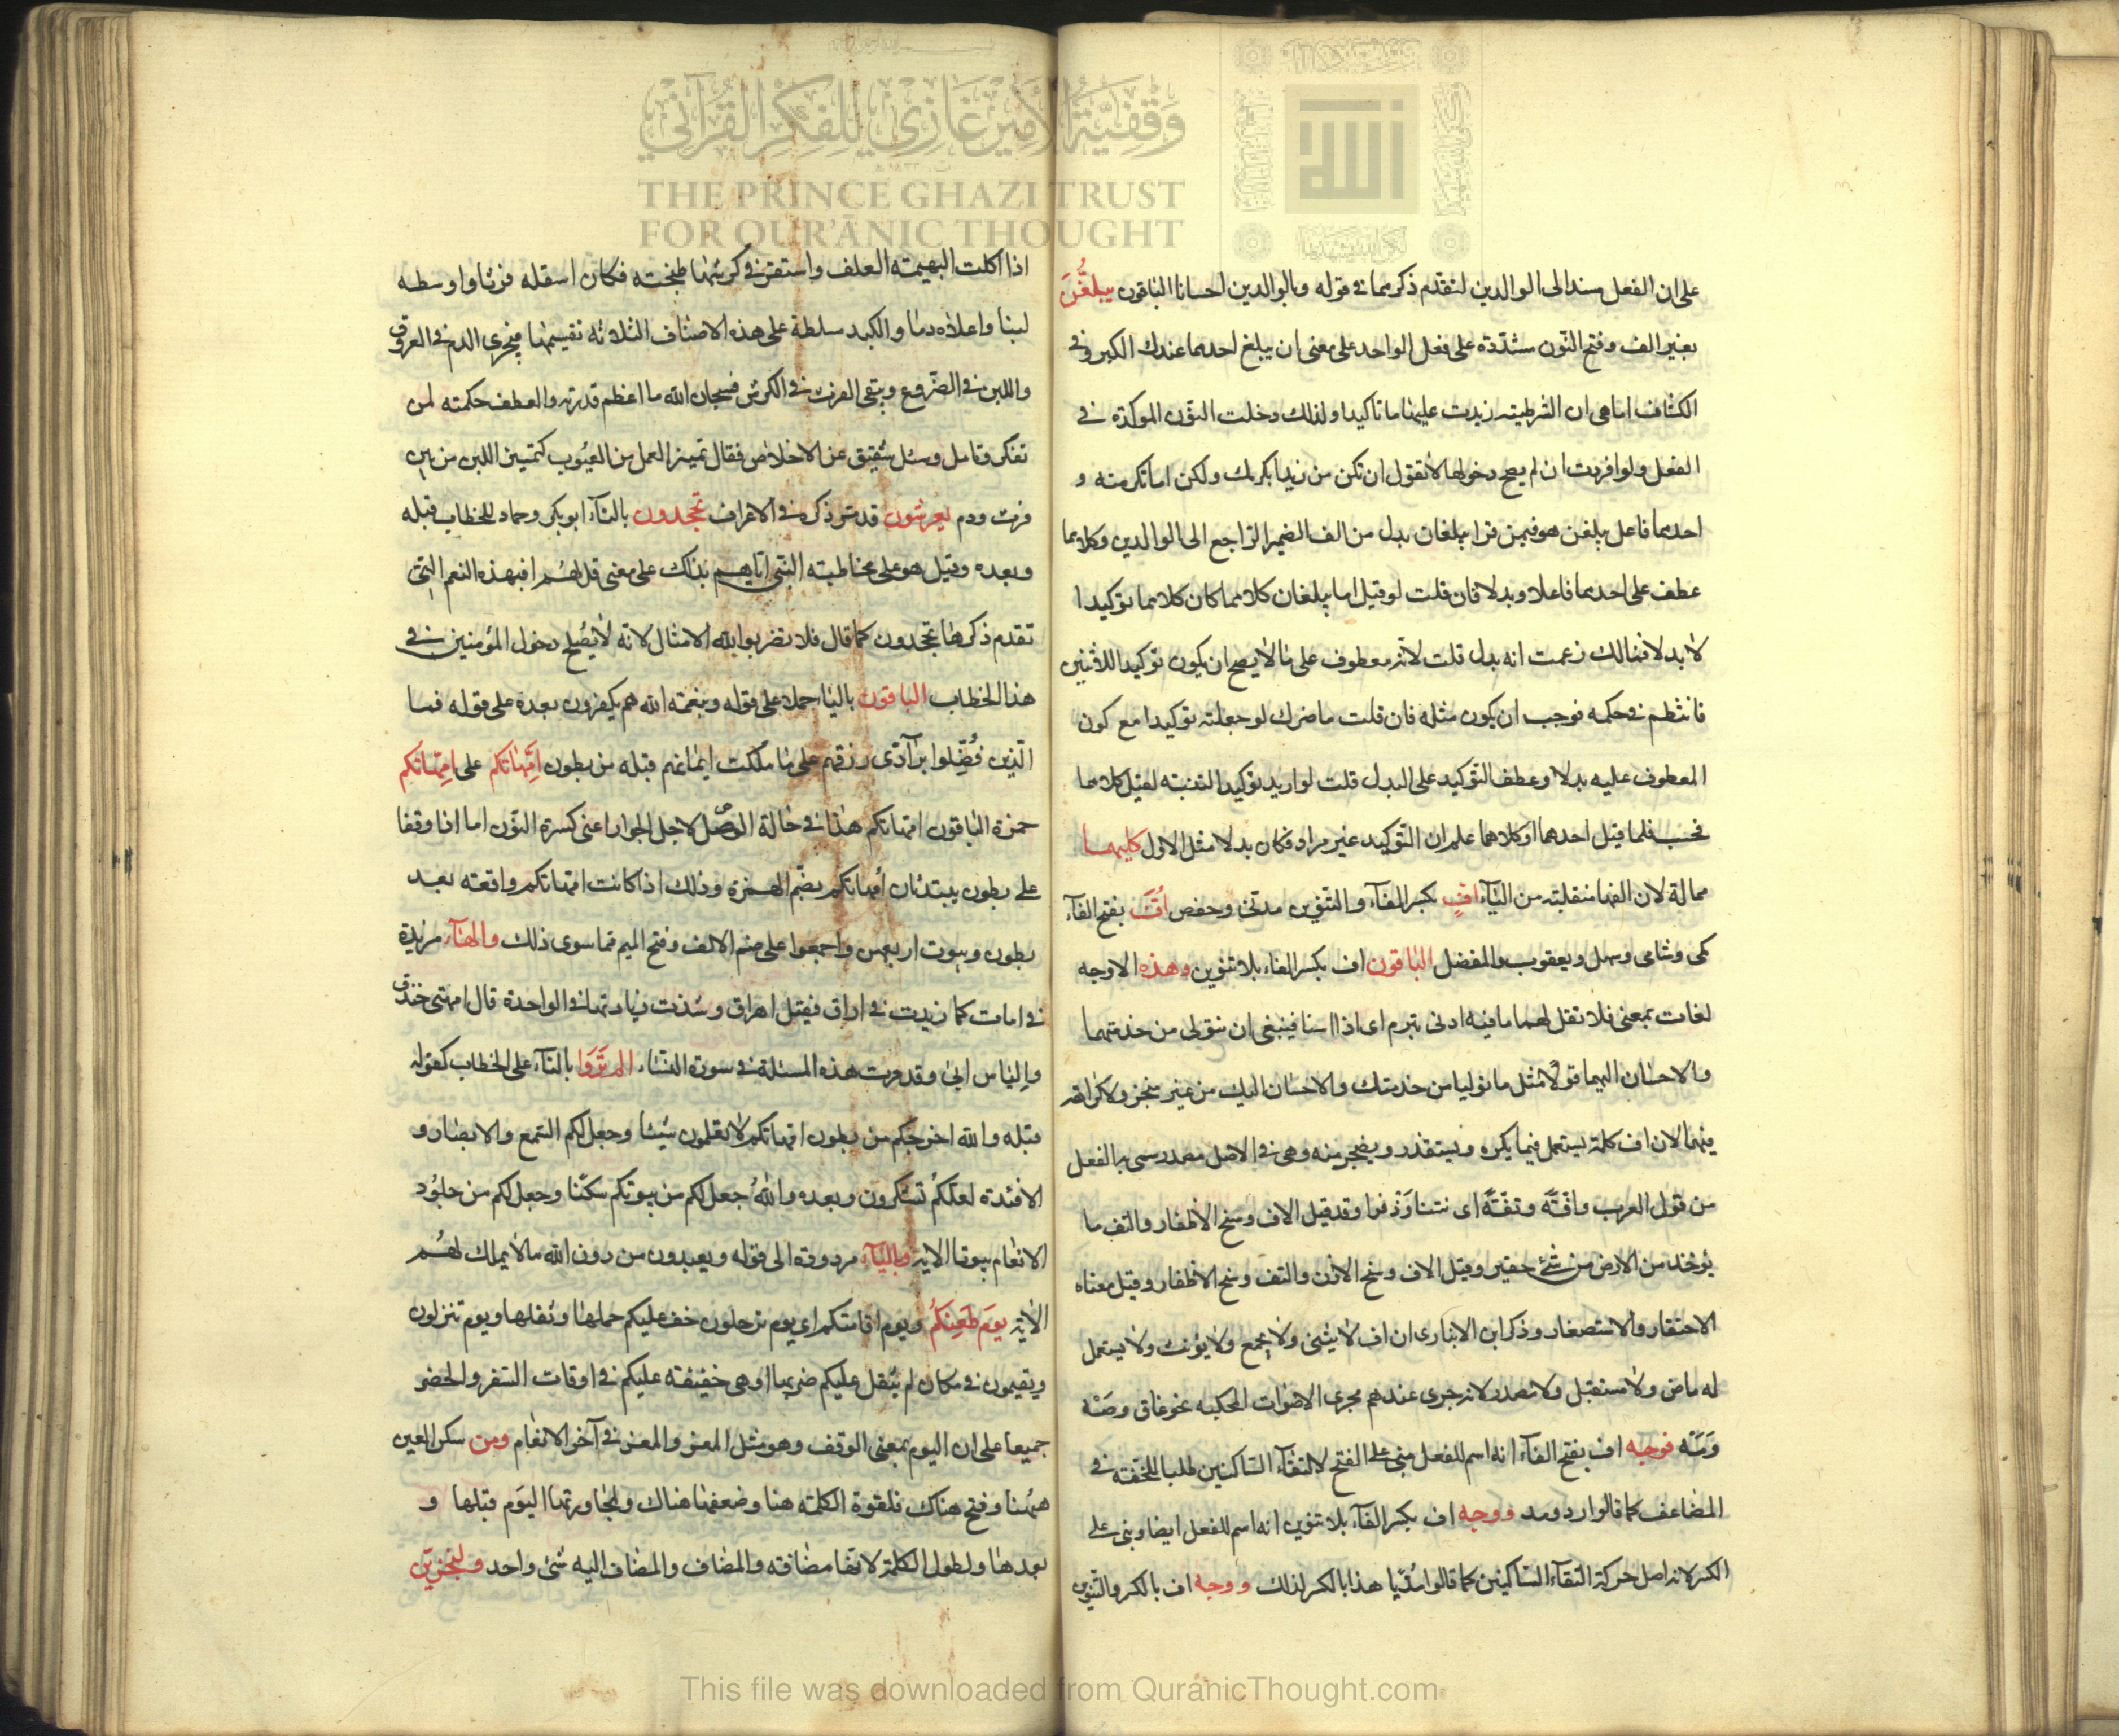 وقفية الأمير غازي للفكر القرآني
THE PRINCE GHAZI TRUST
FOR QUR'ĀNIC THOUGHT
الله
على ان الفعل مسند الى الوالدين لتقدم ذكرهما فى قوله وبالوالدين احسانا الباقون يبلغن
بغير الف وفتح النون مشددة على فعل الواحد على معنى ان يبلغ احدهما عندك الكبر وفى
الكشاف اما هى ان الشرطية زيدت عليها ما تاكيدا ولذلك دخلت النون الموكدة فى
الفعل ولو افردت ان لم يصح دخولها لا تقول ان تكن من زيدا يكرمك ولكن اما تكرمنه و
احدهما فاعل يبلغن هو فيمن قرا يبلغان بدل من الف الضمير الراجع الى الوالدين وكلاهما
عطف على احدهما فاعلا وبدلا فان قلت لو قيل اما يبلغان كلاهما كان كلاهما توكيدا
لا بدلا فمالك زعمت انه بدل قلت لانه معطوف على ما لا يصح ان يكون توكيدا للاثنين
فانتظم فى حكمه فوجب ان يكون مثله فان قلت ما ضرك لو جعلته توكيدا مع كون
المعطوف عليه بدلا وعطف التوكيد على البدل قلت لو اريد توكيد التثنية لقيل كلاهما
فحسب فلما قيل احدهما او كلاهما علم ان التوكيد غير مراد فكان بدلا مثل الاول كليهما
ممالة لان الفها منقلبة من الياء اف بكسر الفاء والتنوين مدنى وحفص اف بفتح الفاء
مكى وشامى وسهل ويعقوب والمفضل الباقون اف بكسر الفاء بلا تنوين وهذه الاوجه
لغات بمعنى فلا تقل لهما ما فيه ادنى تبرم اى اذا اسنا فينبغى ان تتولى من خدمتهما
والاحسان اليهما قولا مثل ما توليا من خدمتك والاحسان اليك من غير ضجر ولا كراهة
منهما لان اف كلمة يستعمل فيما يكره ويستقذر ويضجر منه وهى فى الاصل مصدر سمى به الفعل
من قول العرب وافة وتفة اى نتنا وقد قيل الاف وسخ الاظفار والتف ما
يؤخذ من الارض من شئ حقير وقيل الاف وسخ الاذن والتف وسخ الاظفار وقيل معناه
الاحتقار والاستصغار وذكر ابن الانبارى ان اف لا يثنى ولا يجمع ولا يؤنث ولا يستعمل
له ماض ولا مستقبل ولا مصدر لانه جرى عندهم مجرى الاصوات المحكية نحو غاق وصه
ومه فوجه اف بفتح الفاء انه اسم للفعل مبنى على الفتح لالتقاء الساكنين طلبا للخفة فى
المضاعف كما قالوا رد ومد ووجه اف بكسر الفاء بلا تنوين انه اسم للفعل ايضا وبنى على
الكسر لانه اصل حركة التقاء الساكنين كما قالوا هذا بالكسر لذلك ووجه اف بالكسر والتنوين
اذا اكلت البهيمة العلف واستقر فى كرشها طبخته فكان اسفله فرثا واوسطه
لبنا واعلاه دما والكبد سلطة على هذه الاصناف الثلاثة تقسيمها فيجرى الدم فى العروق
واللبن فى الضروع ويبقى الفرث فى الكرش فسبحان الله ما اعظم قدرته والطف حكمته لمن
تفكر وتامل وسئل شقيق عن الاخلاص فقال تميز العمل من العيوب كتمييز اللبن من بين
فرث ودم يعرشون قد مر ذكره فى الاعراف تجحدون بالتاء ابو بكر وحماد للخطاب قبله
وبعده وقيل هو على مخاطبة النبى اياهم بذلك على معنى قل لهم افبهذه النعم التى
تقدم ذكرها تجحدون كما قال فلا تضربوا لله الامثال لانه لا يصلح دخول المؤمنين فى
هذا الخطاب الباقون بالياء حملا على قوله وبنعمة الله هم يكفرون بعده على قوله فما
الذين فضلوا برآدى رزقهم على ما ملكت ايمانهم قبله من بطون امهاتكم على امهاتكم
حمزة الباقون امهاتكم هذا فى حالة الوصل لاجل الجوار اعنى كسرة النون اما اذا وقفا
على بطون يبتدئان امهاتكم بضم الهمزة وذلك اذا كانت امهاتكم واقعة بعد
بطون وبيوت اربعهن واجمعوا على ضم الالف وفتح الميم فما سوى ذلك والهاء مزيدة
فى امات كما زيدت فى اراق فقيل اهراق وشذت زيادتها فى الواحدة قال امهتى خندف
والياس ابى وقد مرت هذه المسئلة فى سورة النساء الم تروا بالتاء على الخطاب كقوله
قبله والله اخرجكم من بطون امهاتكم لا تعلمون شيئا وجعل لكم السمع والابصار و
الافئدة لعلكم تشكرون وبعده والله جعل لكم من بيوتكم سكنا وجعل لكم من جلود
الانعام بيوتا الاية وبالياء مردودة الى قوله ويعبدون من دون الله ما لا يملك لهم
الاية يوم ظعنكم ويوم اقامتكم اى يوم ترحلون خف عليكم حملها ونقلها ويوم تنزلون
وتقيمون فى مكان لم يثقل عليكم ضربها او هى خفيفة عليكم فى اوقات السفر والحضر
جميعا على ان اليوم بمعنى الوقت وهو مثل المعز والمعز فى آخر الانعام ومن سكن العين
ههنا وفتح هناك فلقوة الكلمة هنا وضعفها هناك ولمجاورتها اليوم قبلها و
بعدها ولطول الكلمة لانها مضافة والمضاف والمضاف اليه شئ واحد ولنجزين
This file was downloaded from QuranicThought.com